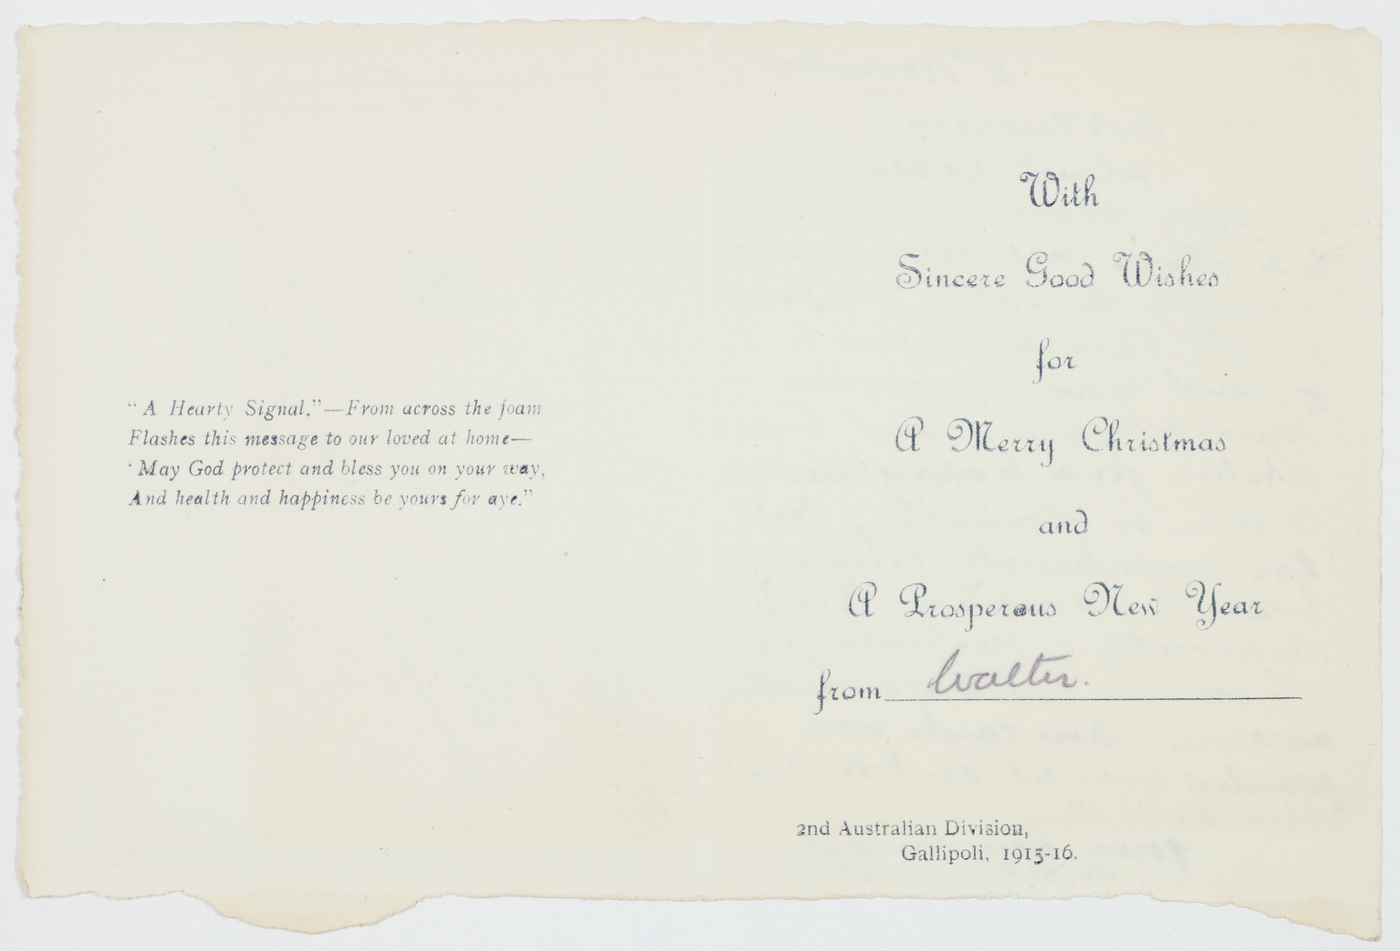 “ A Hearty Signal.”—From across the foam
Flashes this message to our loved at home—
‘ May God protect and bless you on your way,
And health and happiness be yours for aye.”
With
Sincere Good Wishes
for
A Merry Christmas
and
A Prosperous New Year
from Walter.
2nd Australian Division,
Gallipoli, 1915-16.